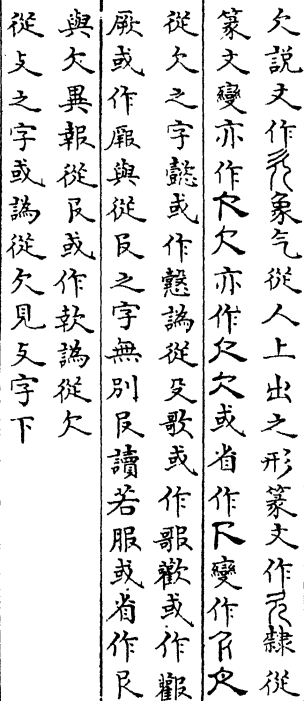 欠說文作象气從人上出之形篆文作隸從
篆文變亦作欠亦作欠或省作變作
從欠之字懿或作懿譌從殳歌或作歌歡或作歡
厥或作與從𠬝之字無別𠬝讀若服或省作
與欠異報從𠬝或作軟譌從欠
從攴之字或譌從欠見攴字下